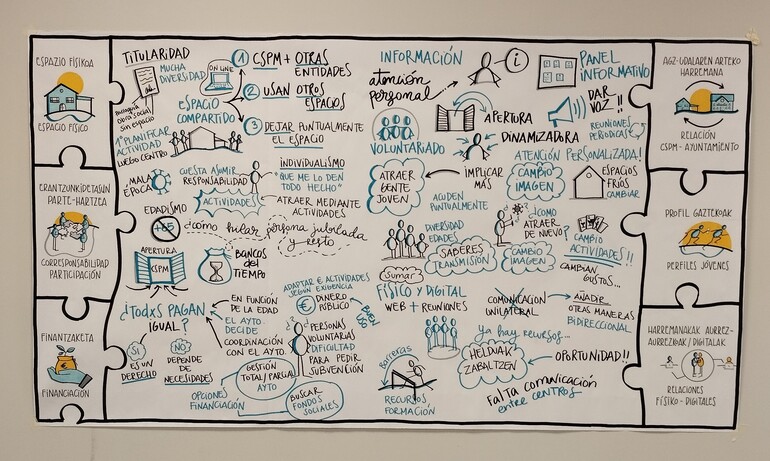 ESPAZIO FISIKOA
ESPACIO FÍSICO
ERANTZUNKIDETASUN
PARTE-HARTZEA
CORRESPONSABILIDAD
PARTICIPACIÓN
FINANTZAKETA
FINANCIACIÓN
TITULARIDAD
MUCHA
DIVERSIDAD
ON LINE
1 CSPM + OTRAS
ENTIDADES
2 USAN OTROS
ESPACIOS
3 DEJAR PUNTUALMENTE
EL ESPACIO
ESPACIO
COMPARTIDO
obra social
sin espacio
1º PLANIFICAR
ACTIVIDAD
LUEGO CENTRO
¡MALA
ÉPOCA!
CUESTA ASUMIR
RESPONSABILIDAD
ACTIVIDADES
INDIVIDUALISMO
"QUE ME LO DEN
TODO HECHO"
ATRAER MEDIANTE
ACTIVIDADES
EDADISMO
+65
¿cómo hular persona jubilada
y resto
APERTURA
CSPM
BANCOS
del
TIEMPO
¿TODXS PAGAN
IGUAL?
SÍ
ES UN
DERECHO
NO
DEPENDE
DE
NECESIDADES
EN FUNCIÓN
DE LA EDAD
EL AYTO
DECIDE
COORDINACIÓN
CON EL AYTO.
GESTIÓN
TOTAL/PARCIAL
AYTO
OPCIONES
FINANCIACIÓN
BUSCAR
FONDOS
SOCIALES
ADAPTAR € ACTIVIDADES
SEGÚN EXIGENCIA
€ DINERO
PÚBLICO
BUEN
USO
PERSONAS
VOLUNTARIAS
DIFICULTAD
PARA PEDIR
SUBVENCIÓN
INFORMACIÓN
atención
personal
i
PANEL
INFORMATIVO
APERTURA
DAR
VOZ!!
REUNIONES
PERIODICAS
DINAMIZADORA
VOLUNTARIADO
ATENCIÓN PERSONALIZADA!
ATRAER
GENTE
JOVEN
IMPLICAR
MÁS
CAMBIO
IMAGEN
ESPACIOS
FRÍOS
CAMBIAR
ACUDEN
PUNTUALMENTE
DIVERSIDAD
EDADES
SABERES
TRANSMISIÓN
Sumar
¿CÓMO
ATRAER
DE NUEVO?
CAMBIO
IMAGEN
CAMBIO
ACTIVIDADES!!
CAMBIAN
GUSTOS...
FÍSICO Y DIGITAL
WEB + REUNIONES
COMUNICACIÓN
UNILATERAL
AÑADIR
OTRAS MANERAS
BIDIRECCIONAL
Ya hay recursos...
HELDUAK
ZABALTZEN
OPORTUNIDAD!!
Barreras
RECURSOS
FORMACIÓN
FALTA COMUNICACIÓN
entre CENTROS
AGZ-UDALAREN ARTEKO
HARREMANA
RELACIÓN
CSPM - AYUNTAMIENTO
PROFIL GAZTEKOAK
PERFILES JÓVENES
HARREMANAK AURREZ-
AURREKOAK / DIGITALAK
RELACIONES
FÍSIKO - DIGITALES